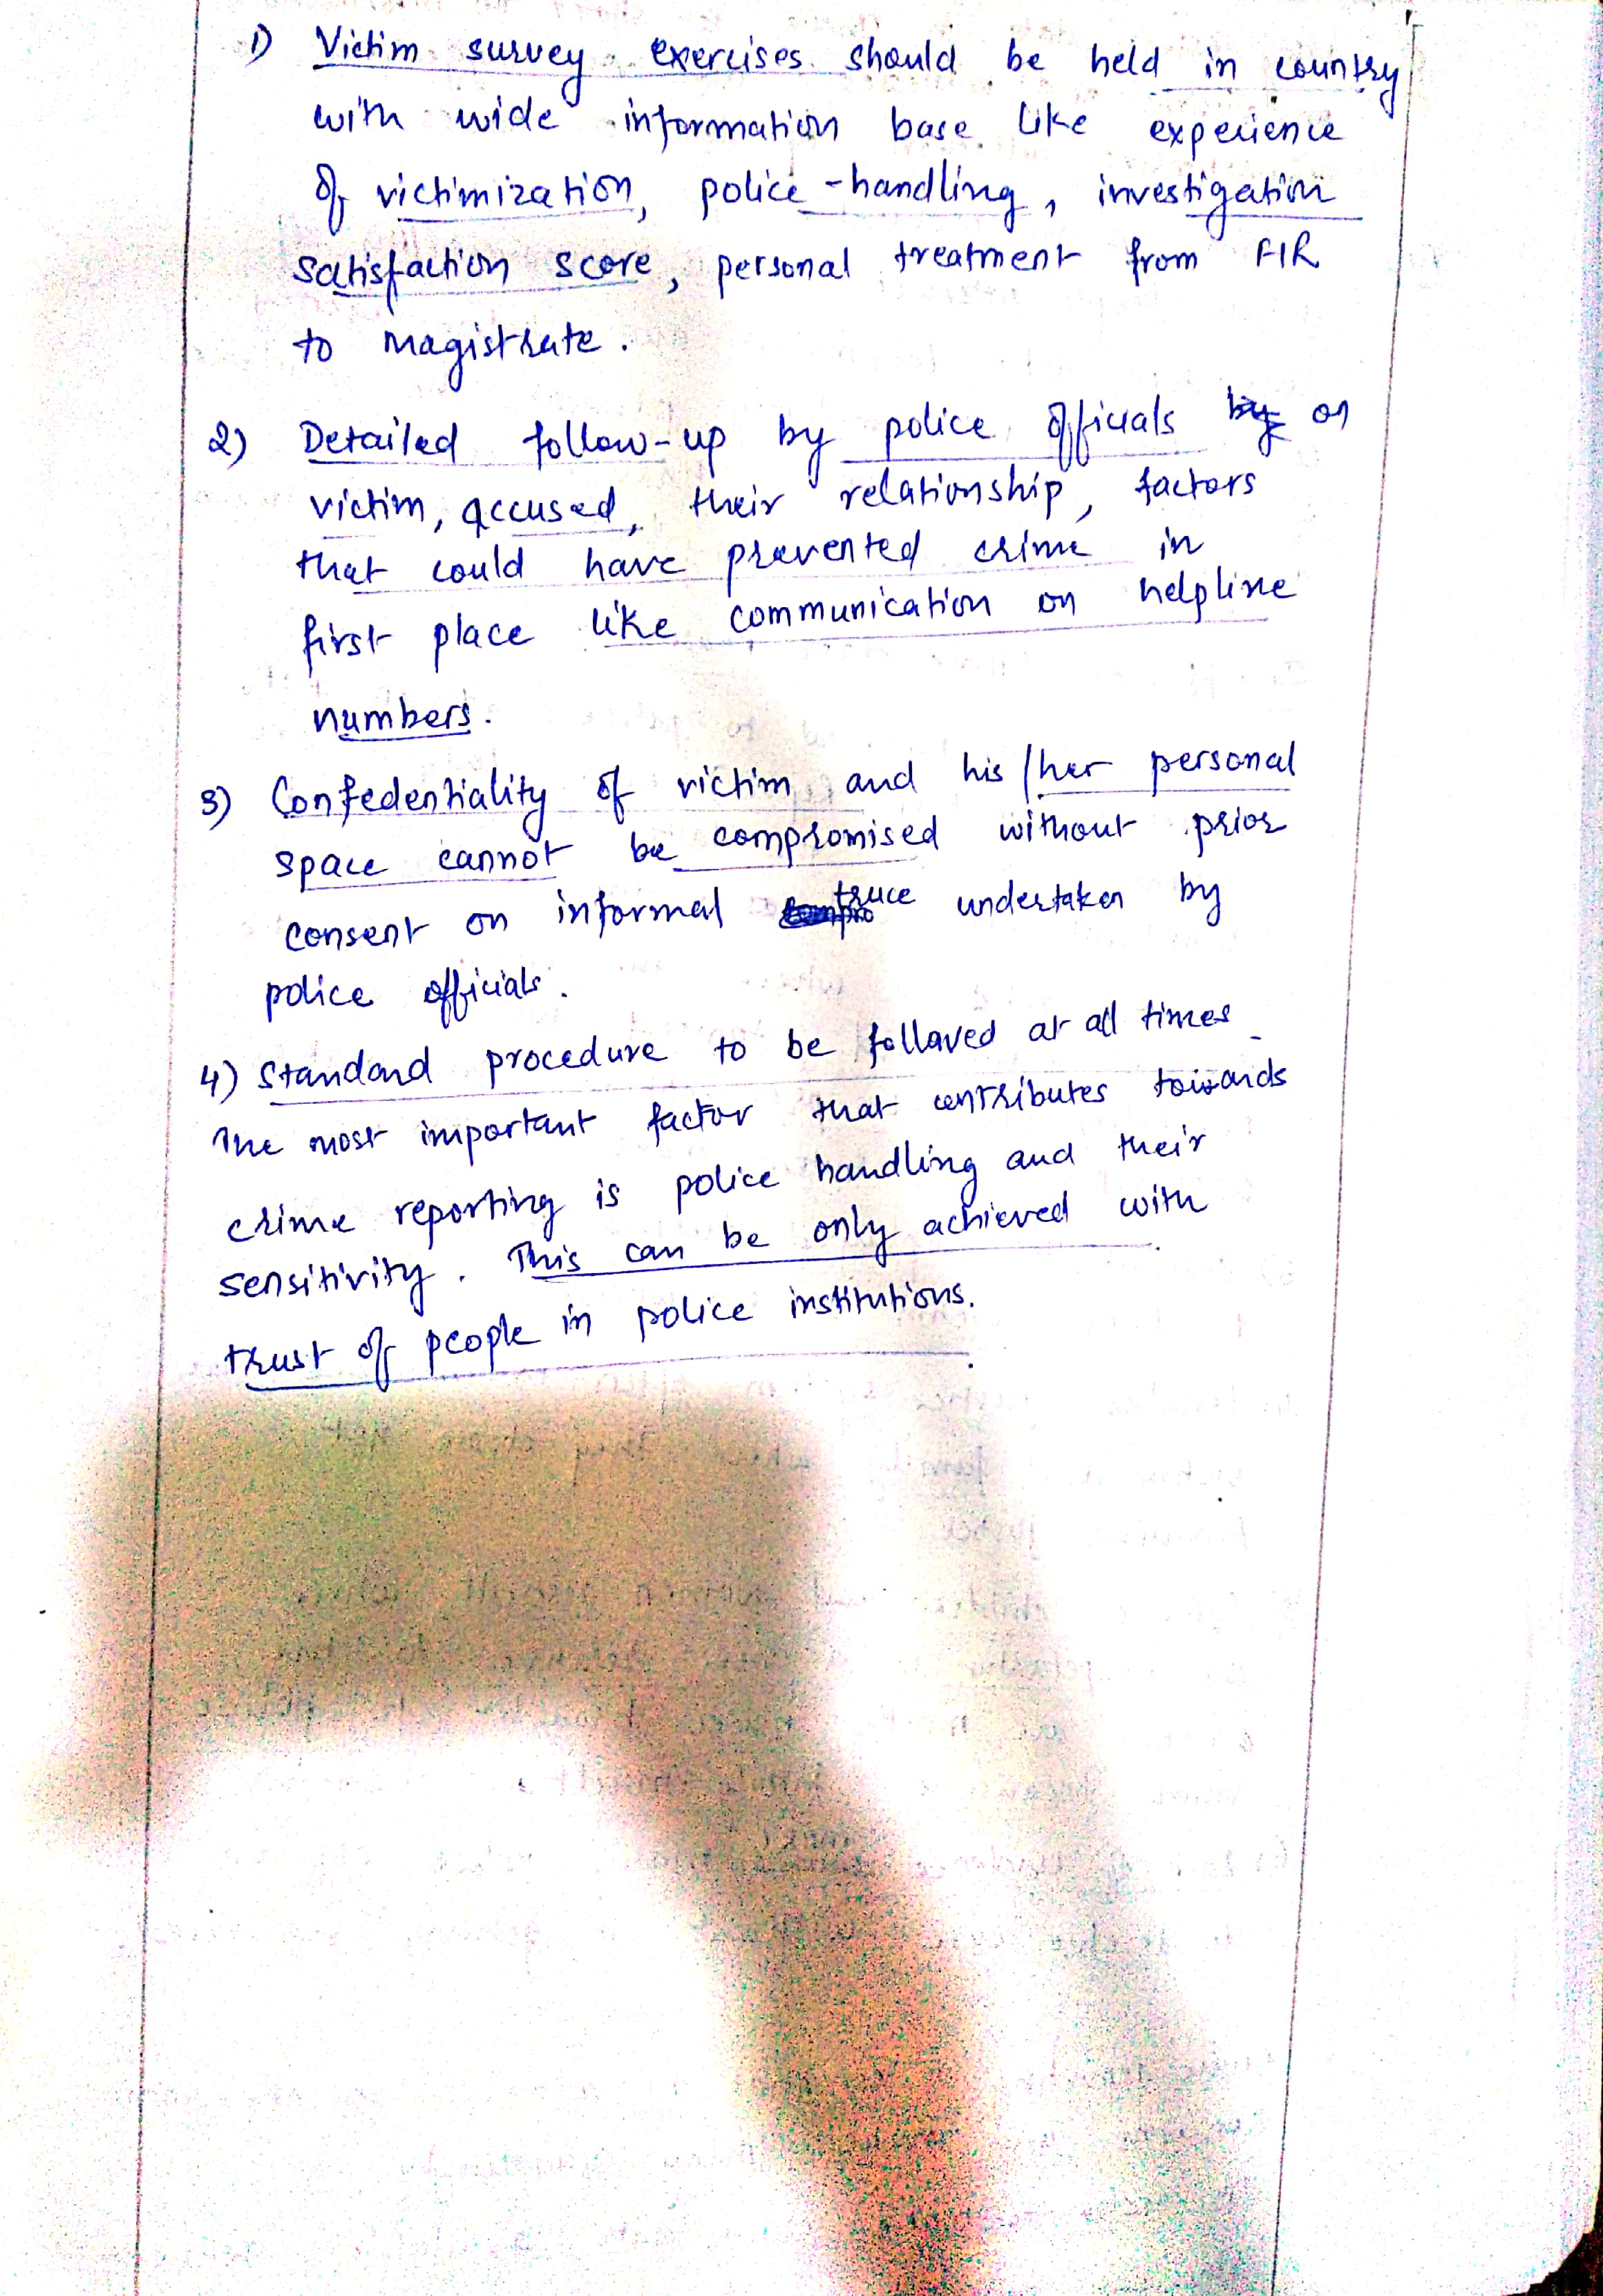 1) Victim survey exercises should be held in country
with wide information base like experience
of victimization, police-handling, investigation
satisfaction score, personal treatment from FIR
to magistrate.
2) Detailed follow-up by police officials by on
victim, accused, their relationship, factors
that could have prevented crime in
first place like communication on helpline
numbers.
3) Confedentiality of victim and his/her personal
space cannot be compromised without prior
consent on informal truce undertaken by
police officials.
4) Standard procedure to be followed at all times
The most important factor that contributes towards
crime reporting is police handling and their
sensitivity. This can be only achieved with
trust of people in police institutions.